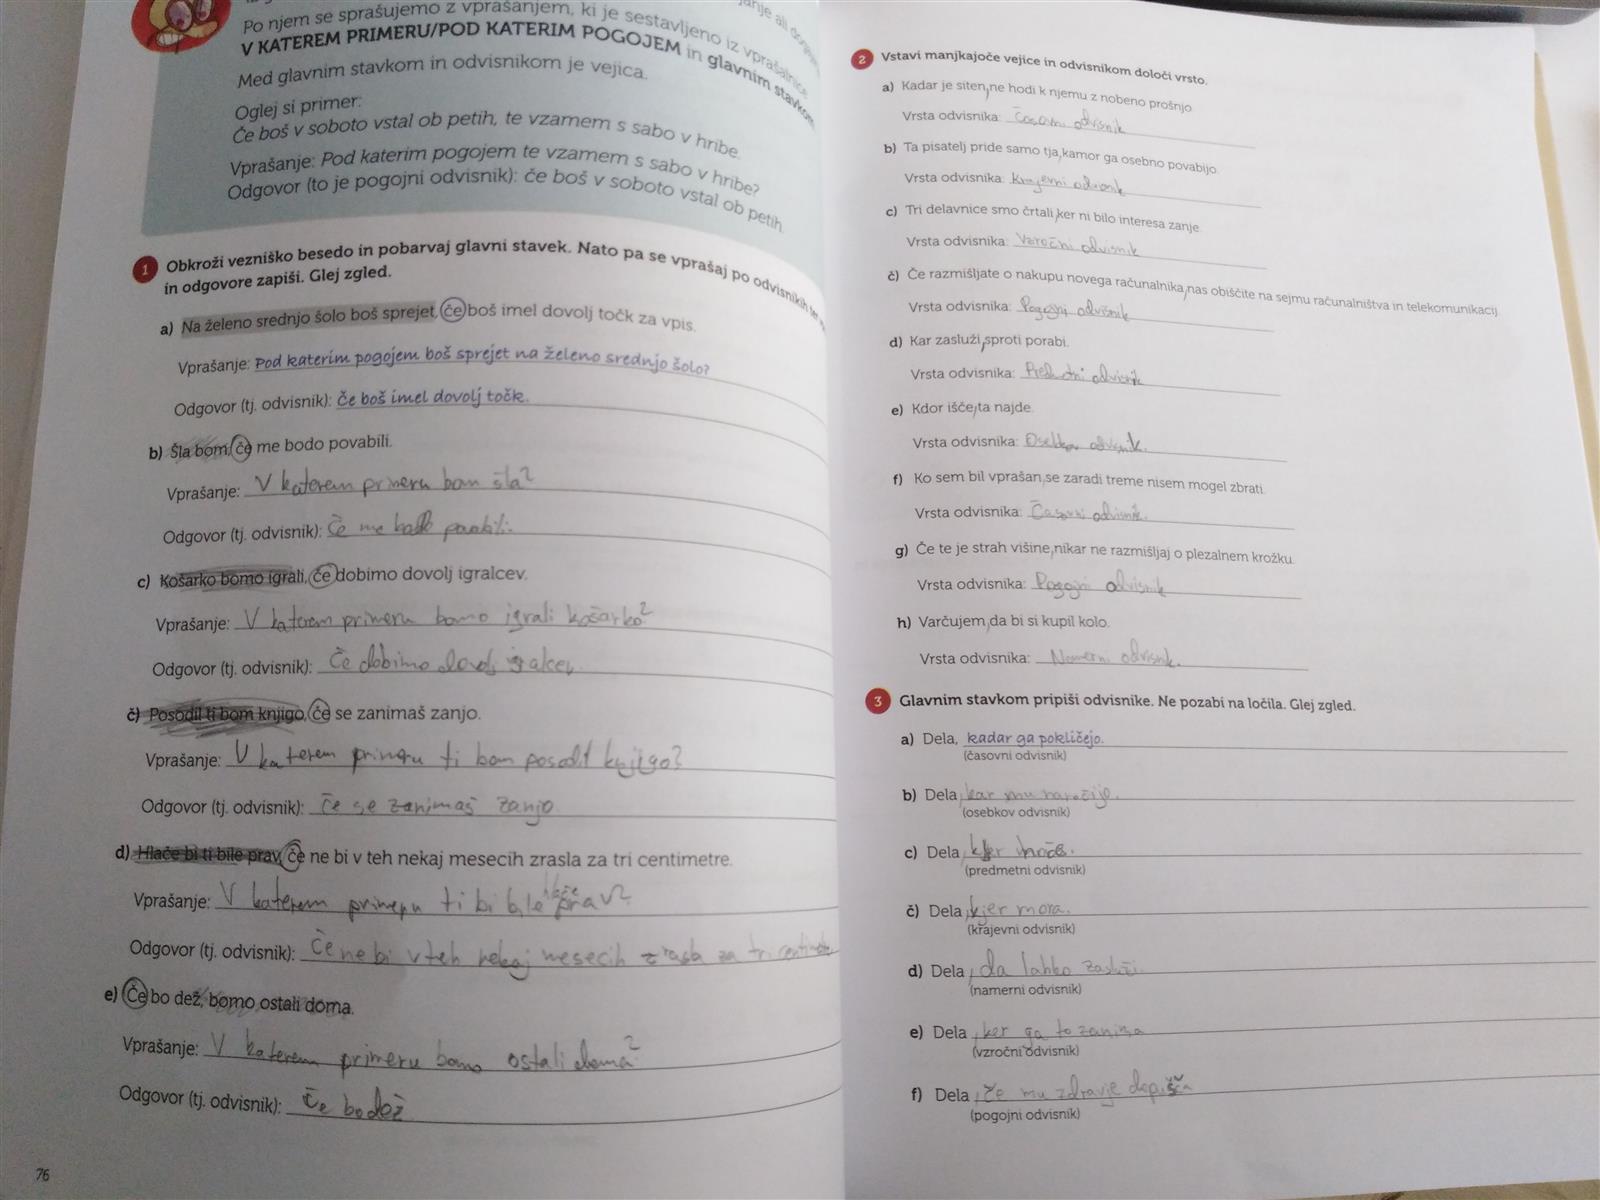 Po njem se sprašujemo z vprašanjem, ki je sestavljeno iz vprašalnice
V KATEREM PRIMERU/POD KATERIM POGOJEM in glavnim stavkom
Med glavnim stavkom in odvisnikom je vejica.
Oglej si primer:
Če boš v soboto vstal ob petih, te vzamem s sabo v hribe.
Vprašanje: Pod katerim pogojem te vzamem s sabo v hribe?
Odgovor (to je pogojni odvisnik): če boš v soboto vstal ob petih.
1 Obkroži vezniško besedo in pobarvaj glavni stavek. Nato pa se vprašaj po odvisnikih ter
in odgovore zapiši. Glej zgled.
a) Na želeno srednjo šolo boš sprejet, če boš imel dovolj točk za vpis.
Vprašanje: Pod katerim pogojem boš sprejet na želeno srednjo šolo?
Odgovor (tj. odvisnik): Če boš imel dovolj točk.
b) Šla bom, če me bodo povabili.
Vprašanje: V katerem primeru bom šla?
Odgovor (tj. odvisnik): Če me povabili.
c) Košarko bomo igrali, če dobimo dovolj igralcev.
Vprašanje: V katerem primeru bomo igrali košarko?
Odgovor (tj. odvisnik): Če dobimo dovolj igralcev
č) Posodil ti bom knjigo, če se zanimaš zanjo.
Vprašanje: V katerem primeru ti bom posodil knjigo?
Odgovor (tj. odvisnik): če se zanimaš zanjo
d) Hlače bi ti bile prav, če ne bi v teh nekaj mesecih zrasla za tri centimetre.
Vprašanje: V katerem primeru ti bi bile hlače prav?
Odgovor (tj. odvisnik): Če ne bi v teh nekaj mesecih zrasla za tri centimetre
e) Če bo dež, bomo ostali doma.
Vprašanje: V katerem primeru bomo ostali doma?
Odgovor (tj. odvisnik): Če bo dež
76
2 Vstavi manjkajoče vejice in odvisnikom določi vrsto.
a) Kadar je siten, ne hodi k njemu z nobeno prošnjo.
Vrsta odvisnika: Časovni odvisnik
b) Ta pisatelj pride samo tja, kamor ga osebno povabijo.
Vrsta odvisnika: Krajevni odvisnik
c) Tri delavnice smo črtali, ker ni bilo interesa zanje.
Vrsta odvisnika: Vzročni odvisnik
č) Če razmišljate o nakupu novega računalnika, nas obiščite na sejmu računalništva in telekomunikacij.
Vrsta odvisnika: Pogojni odvisnik
d) Kar zasluži, sproti porabi.
Vrsta odvisnika: Predmetni odvisnik
e) Kdor išče, ta najde.
Vrsta odvisnika: Osebkov odvisnik.
f) Ko sem bil vprašan, se zaradi treme nisem mogel zbrati.
Vrsta odvisnika: Časovni odvisnik.
g) Če te je strah višine, nikar ne razmišljaj o plezalnem krožku.
Vrsta odvisnika: Pogojni odvisnik
h) Varčujem, da bi si kupil kolo.
Vrsta odvisnika: Namerni odvisnik.
3 Glavnim stavkom pripiši odvisnike. Ne pozabi na ločila. Glej zgled.
a) Dela, kadar ga pokličejo.
(časovni odvisnik)
b) Dela, kar mu naročijo.
(osebkov odvisnik)
c) Dela,
(predmetni odvisnik)
č) Dela, kjer mora.
(krajevni odvisnik)
d) Dela, da lahko zasluži.
(namerni odvisnik)
e) Dela, ker ga to zanima
(vzročni odvisnik)
f) Dela, če mu zdravje dopišča
(pogojni odvisnik)